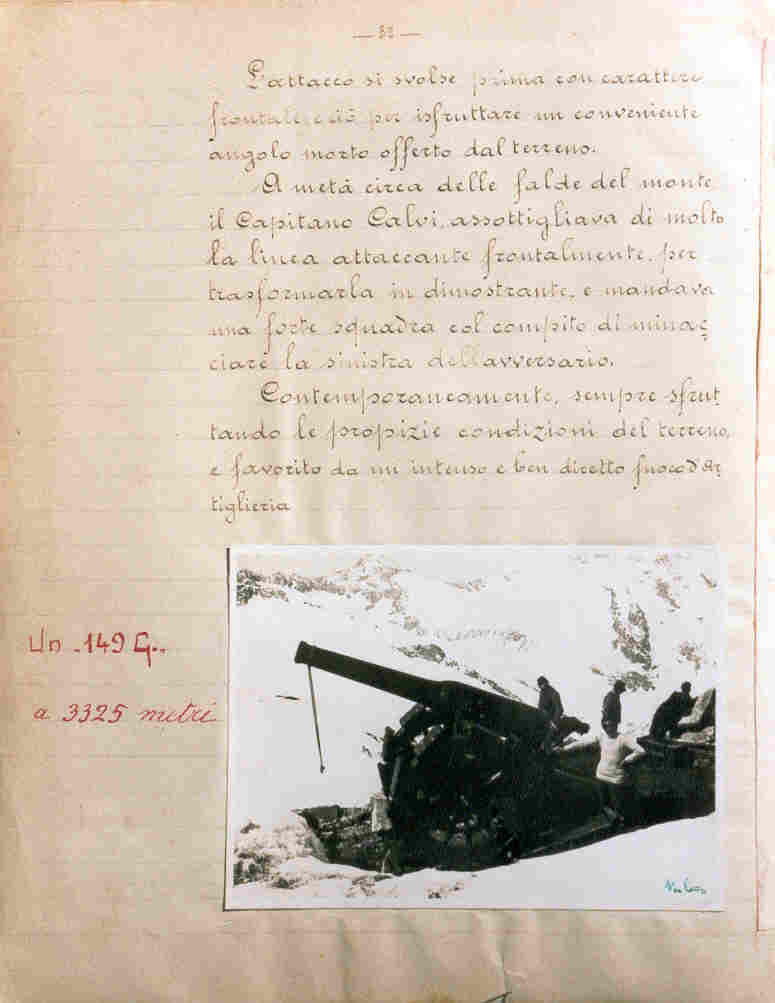 — 32 —
L'attacco si svolse prima con carattere
frontale e ciò per isfruttare un conveniente
angolo morto offerto dal terreno.
A metà circa delle falde del monte
il Capitano Calvi, assottigliava di molto
la linea attaccante frontalmente, per
trasformarla in dimostrante, e mandava
una forte squadra col compito di minac
ciare la sinistra dell'avversario.
Contemporaneamente, sempre sfrut
tando le propizie condizioni del terreno,
e favorito da un intenso e ben diretto fuoco d'ar
tiglieria
Un 149 G.
a 3325 metri